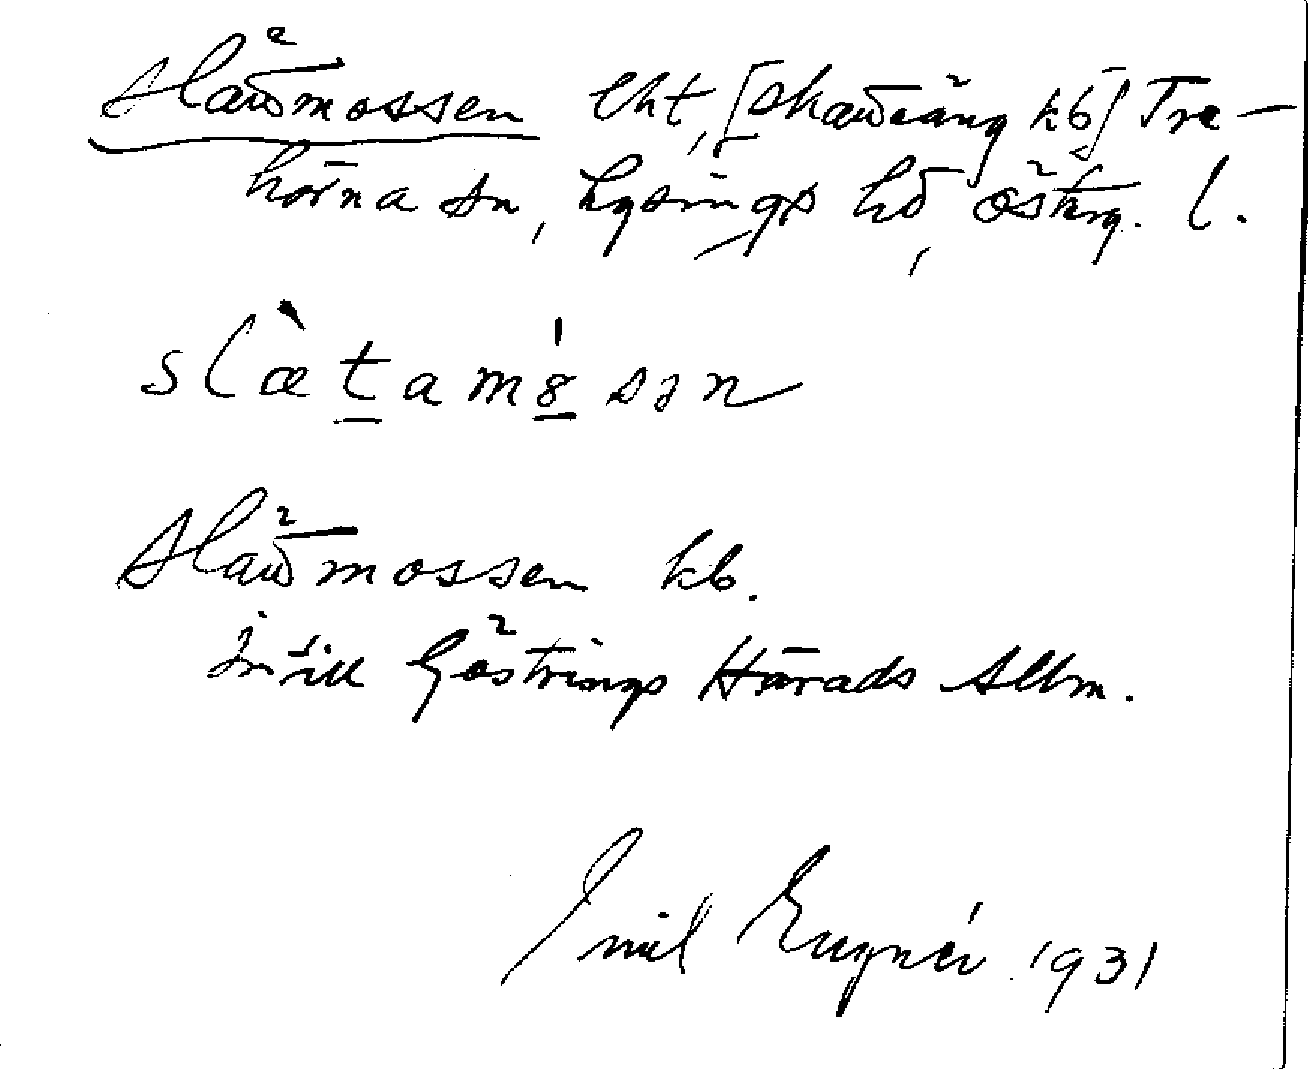 Slättmossen lht, [Skattäng kb] Tre-
hörna sn, Lysings hd, Östrg. l.
slæ̀tamósən
Slättmossen kb.
in till Göstrings Härads Allm.
Emil 1931